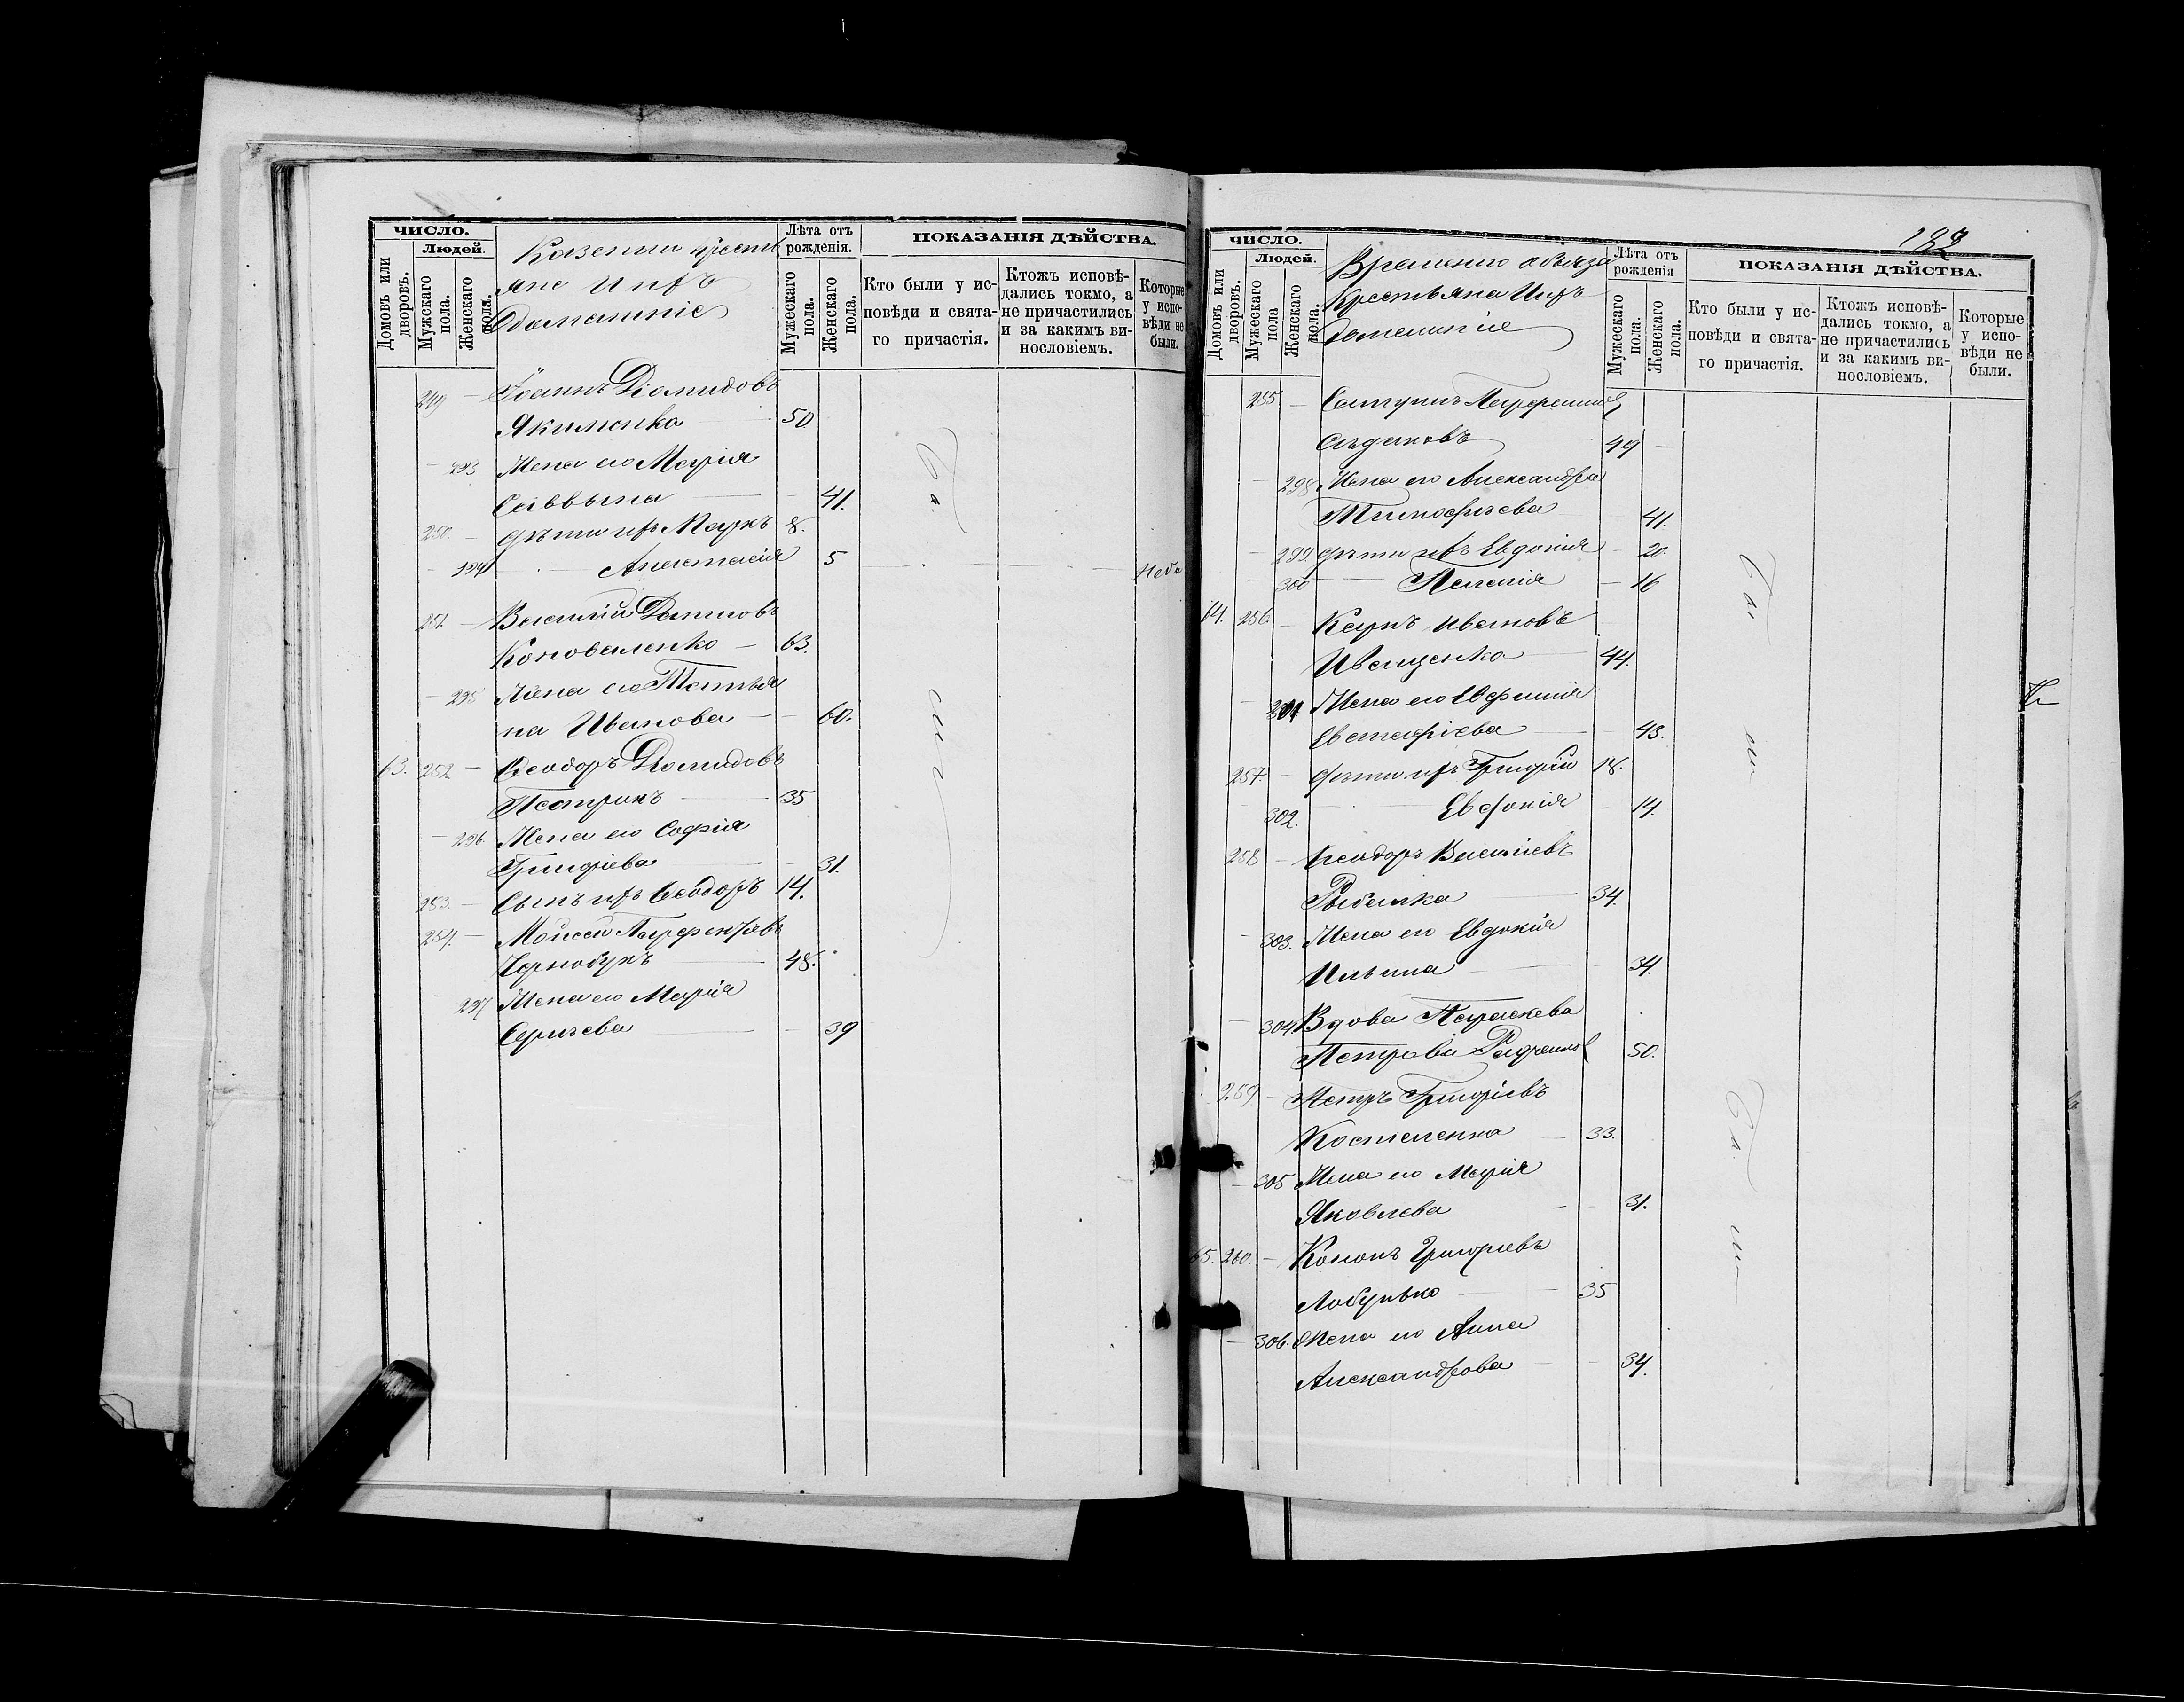 ЧИСЛО.
Людей.
Домовъ или дворовъ.
Мужскаго пола.
Женскаго пола.
Казенни крестъ
яне и ихъ
домашніе
Лѣта отъ рожденія.
Мужескаго пола.
Женскаго пола.
ПОКАЗАНІЯ ДѢЙСТВА.
Кто были у ис-
повѣди и свята-
го причастія.
Ктожъ исповѣ-
дались токмо, а
не причастились
и за какимъ ви-
нословіемъ.
Которые
у испо-
вѣди не
были.
249 — Іоаннъ Діомидовъ
Якименко — 50
— 293 Жена его Марія
Саввына — 41.
250. — дѣти ихъ Маркъ 8.
— 294 — Анастасія 5
251. — Василій Даниловъ
Коноваленко — 63.
— 295 Жена его Татья
на Иванова — 60.
63. 252 — Ѳеодоръ Діомидовъ
35
— 296. Жена его Софія
Григоріева — 31.
253. — Сынъ ихъ Ѳеодоръ 14.
254. — Моисей Парфентіевъ
48.
297 Жена его Марія
Сергіева — 39
Бы
ли
ЧИСЛО.
Людей.
Домовъ или дворовъ.
Мужескаго пола
Женскаго пола.
Временно обяза
Крестьяна Ихъ
домашніе
Лѣта отъ рожденія
Мужескаго пола.
Женскаго пола.
ПОКАЗАНІЯ ДѢЙСТВА.
Кто были у ис-
повѣди и свята-
го причастія.
Ктожъ исповѣ-
дались токмо, а
не причастились
и за какимъ ви-
нословіемъ.
Которые
у испо-
вѣди не
были.
255 —
49 —
— 298 Жена его Александра
Тимофѣева 41.
— 299 дѣти ихъ Евдокія — 20.
— 300 — Пелагія — 16
64. 256. — Карпъ Ивановъ
Иващенко — 44.
— 301 Жена его Евфимія
Евстафіева — 43.
257. — дѣти ихъ Григорій 18.
302. — Евдокія — 14.
258 — Ѳеодоръ Василіевъ
Рыбалка — 34.
— 303. Жена его Евдокія
Ильина — 34.
— 304 Вдова Параскева
Петрова Радченков 50.
259 — Петръ Григоріевъ
Костенко — 33.
— 305 Жена его Марія
Яковлева — 31.
65. 260. — Кононъ Григоріевъ
Лобунько — 35
— 306. Жена его Анна
Александрова — 34.
Бы
ли
Бы
ли